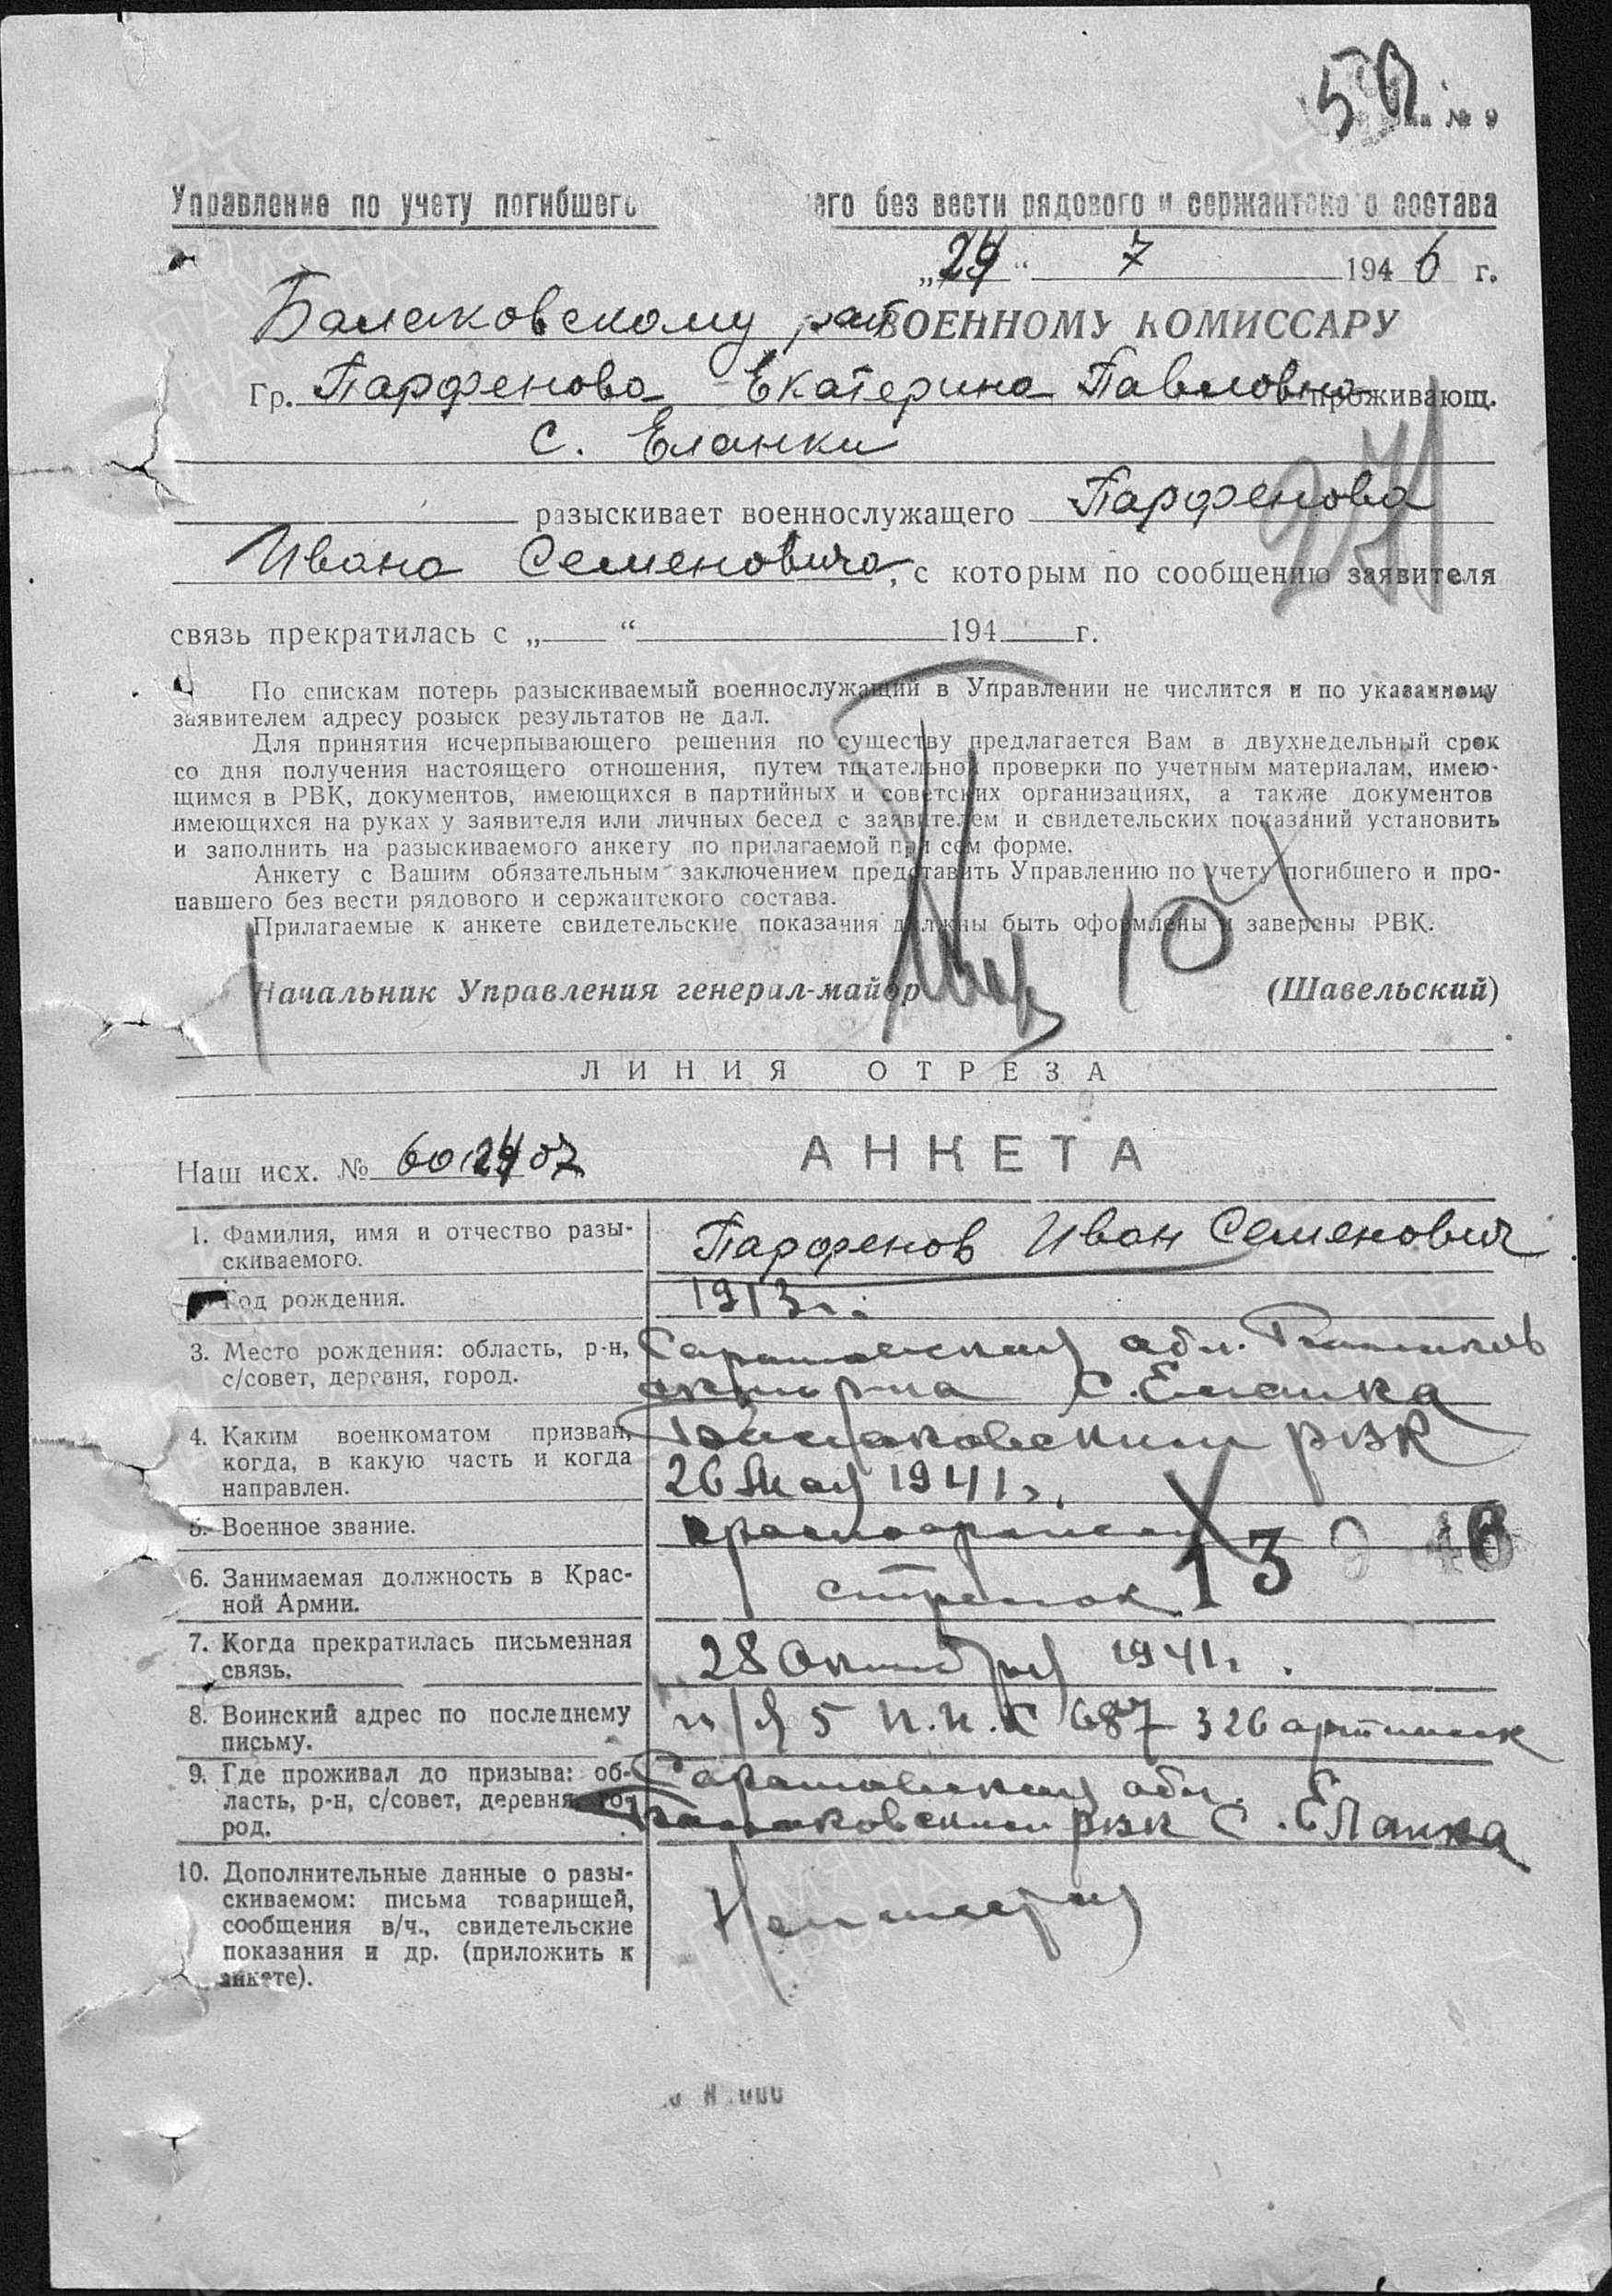 50
№ 9
Управление по учету погибшего его без вести рядового и сержантского состава
„29“ 7 1946 г.
Балаковскому рай ВОЕННОМУ КОМИССАРУ
Гр. Парфенова Екатерина Павловна проживающ.
с. Еланки
разыскивает военнослужащего Парфенова
Ивана Семеновича, с которым по сообщению заявителя
связь прекратилась с „ “ 194 г.
По спискам потерь разыскиваемый военнослужащий в Управлении не числится и по указанному
заявителем адресу розыск результатов не дал.
Для принятия исчерпывающего решения по существу предлагается Вам в двухнедельный срок
со дня получения настоящего отношения, путем тщательной проверки по учетным материалам, имею-
щимся в РВК, документов, имеющихся в партийных и советских организациях, а также документов
имеющихся на руках у заявителя или личных бесед с заявителем и свидетельских показаний установить
и заполнить на разыскиваемого анкету по прилагаемой при сем форме.
Анкету с Вашим обязательным заключением представить Управлению по учету погибшего и про-
павшего без вести рядового и сержантского состава.
Прилагаемые к анкете свидетельские показания должны быть оформлены и заверены РВК.
Начальник Управления генерал-майор (Шавельский)
ЛИНИЯ ОТРЕЗА
Наш исх. № АНКЕТА
1. Фамилия, имя и отчество разы-
скиваемого.
Парфенов Иван Семенович
Год рождения.
1913 г.
3. Место рождения: область, р-н,
с/совет, деревня, город.
Саратовская обл. Балаков
ский р-на С. Еланка
4. Каким военкоматом призван,
когда, в какую часть и когда
направлен.
Балаковским РВК
26 мая 1941 г.
5. Военное звание.
красноармеец
13 9 46
6. Занимаемая должность в Крас-
ной Армии.
стрелок
7. Когда прекратилась письменная
связь.
28 октября 1941 г.
8. Воинский адрес по последнему
письму.
п/я 5 п.п.с 687 326
9. Где проживал до призыва: об-
ласть, р-н, с/совет, деревня, го-
род.
Саратовская обл.
Балаковским РВК С. Еланка
10. Дополнительные данные о разы-
скиваемом: письма товарищей,
сообщения в/ч., свидетельские
показания и др. (приложить к
анкете).